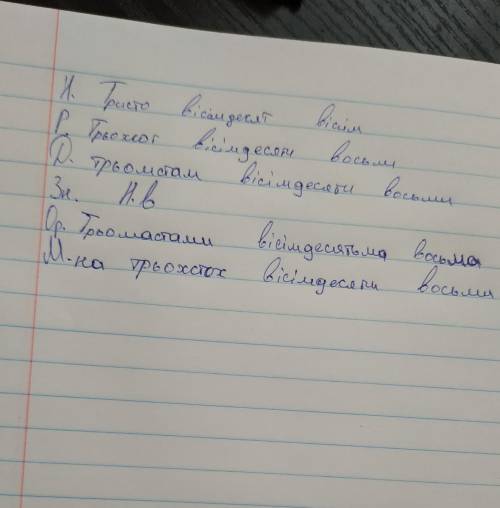 Н. Тристо вісімдесят вісім
Р. Трьохсот вісімдесяти восьми
Д. трьомстам вісімдесяти восьми
Зн. Н.в
Ор. Трьомастами вісімдесятьма восьма
М. на трьохстох вісімдесяти восьми